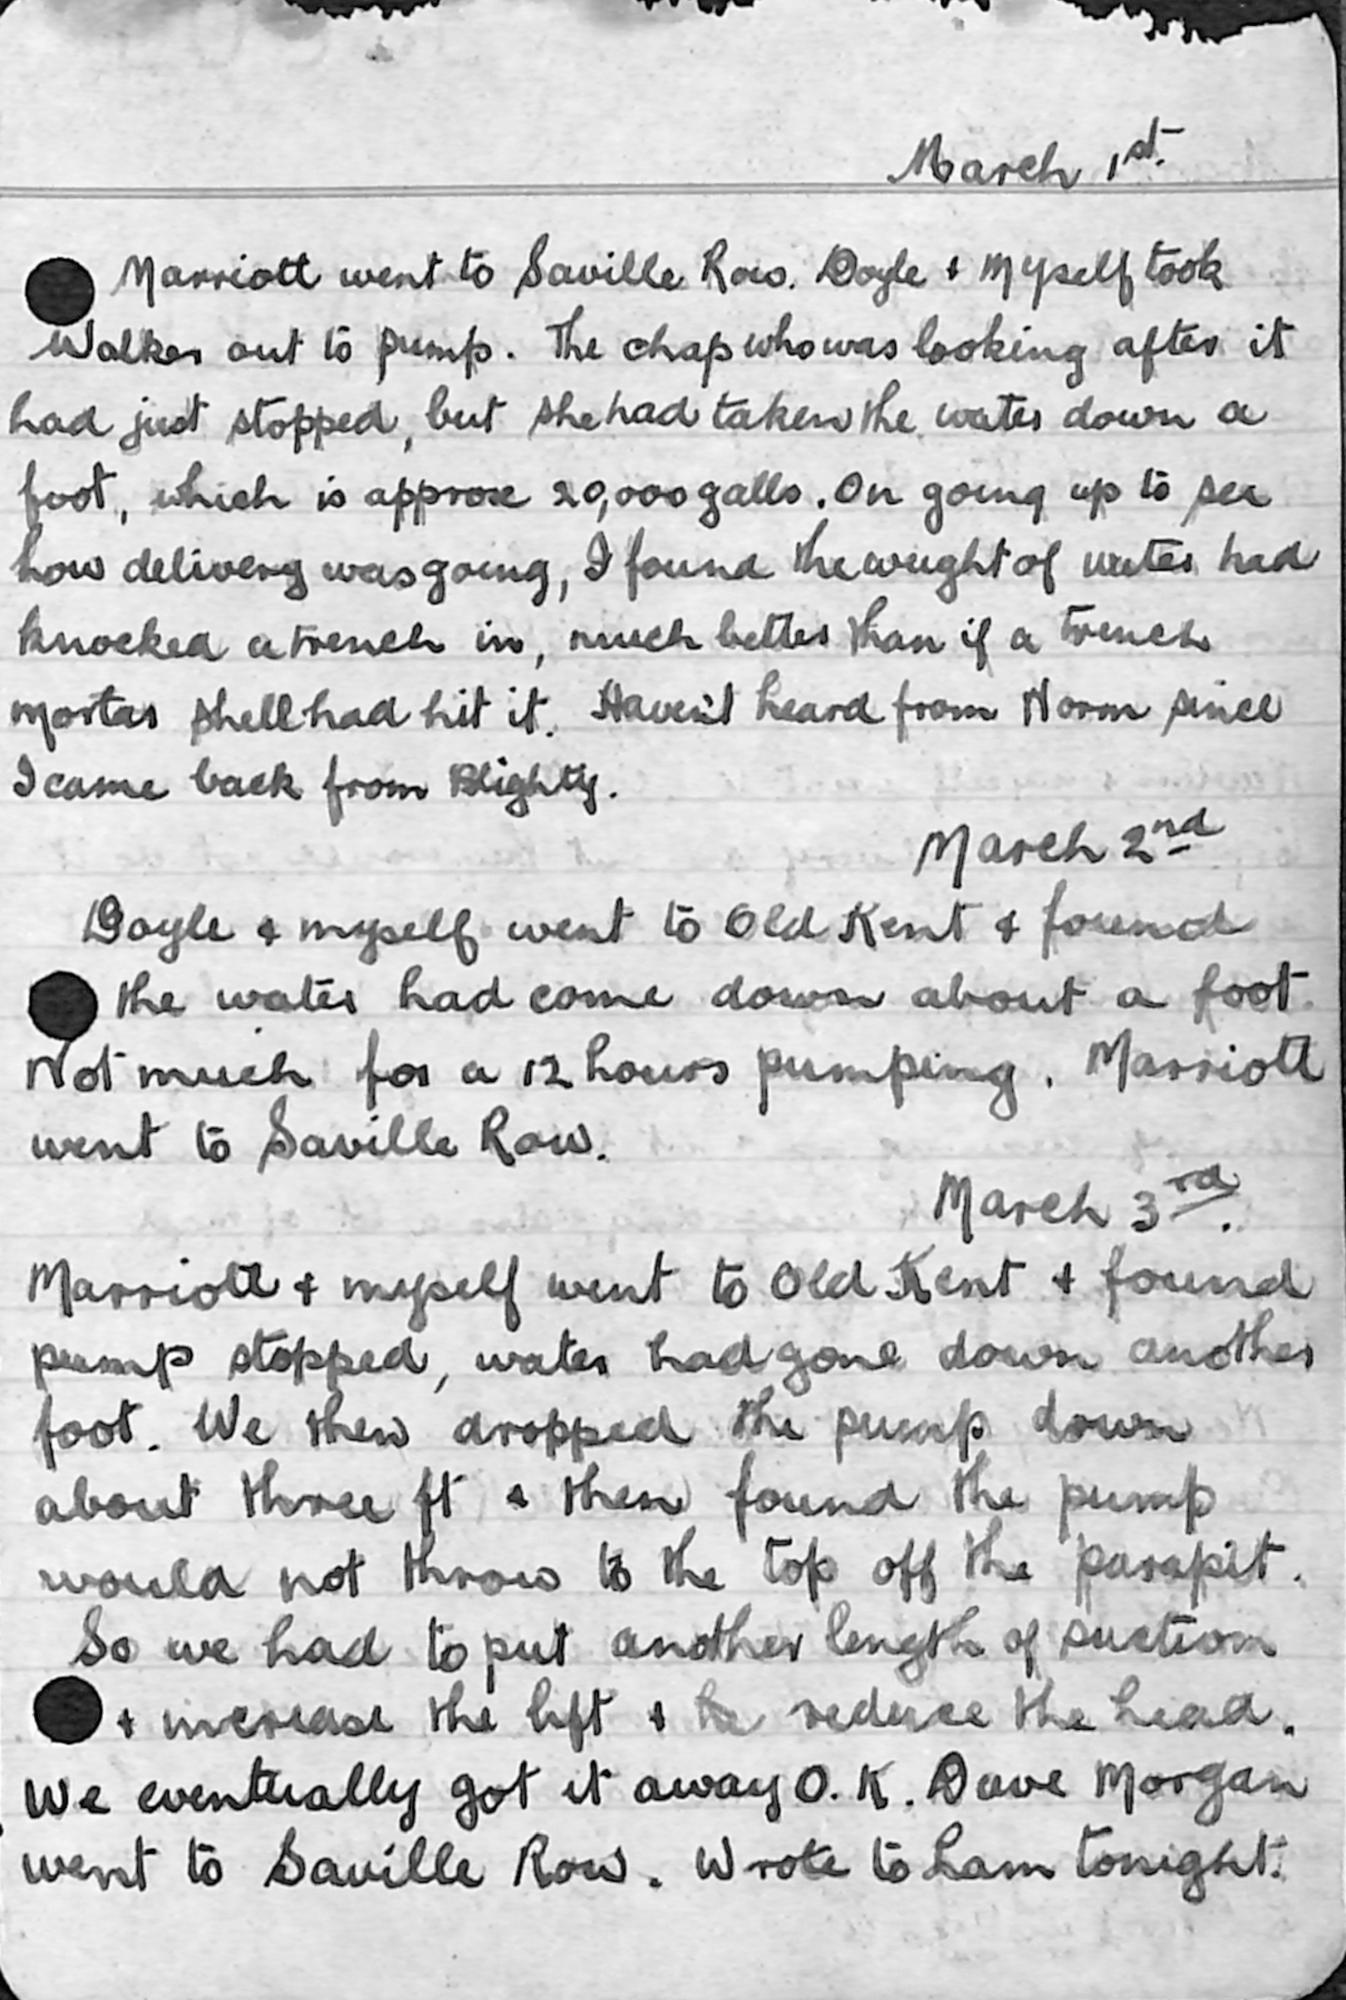 March 1st.
Marriott went to Saville Row. Doyle & Myself took
Walker out to pump. The chap who was looking after it
had just stopped, but she had taken the water down a
foot, which is approx 20,000 galls. On going up to see
how delivery was going, I found the weight of water had
knocked a trench in, much better than if a trench
mortar shell had hit it. Haven't heard from Norm since
I came back from Blighty.
March 2nd
Doyle & myself went to Old Kent & found
the water had come down about a foot.
Not much for a 12 hours pumping. Marriott
went to Saville Row.
March 3rd.
Marriott & myself went to Old Kent & found
pump stopped, water had gone down another
foot. We then dropped the pump down
about three ft & then found the pump
would not throw to the top off the parapit.
So we had to put another length of suction
& increase the lift & reduce the head.
We eventually got it away O.K. Dave Morgan
went to Saville Row. Wrote to Lam tonight.